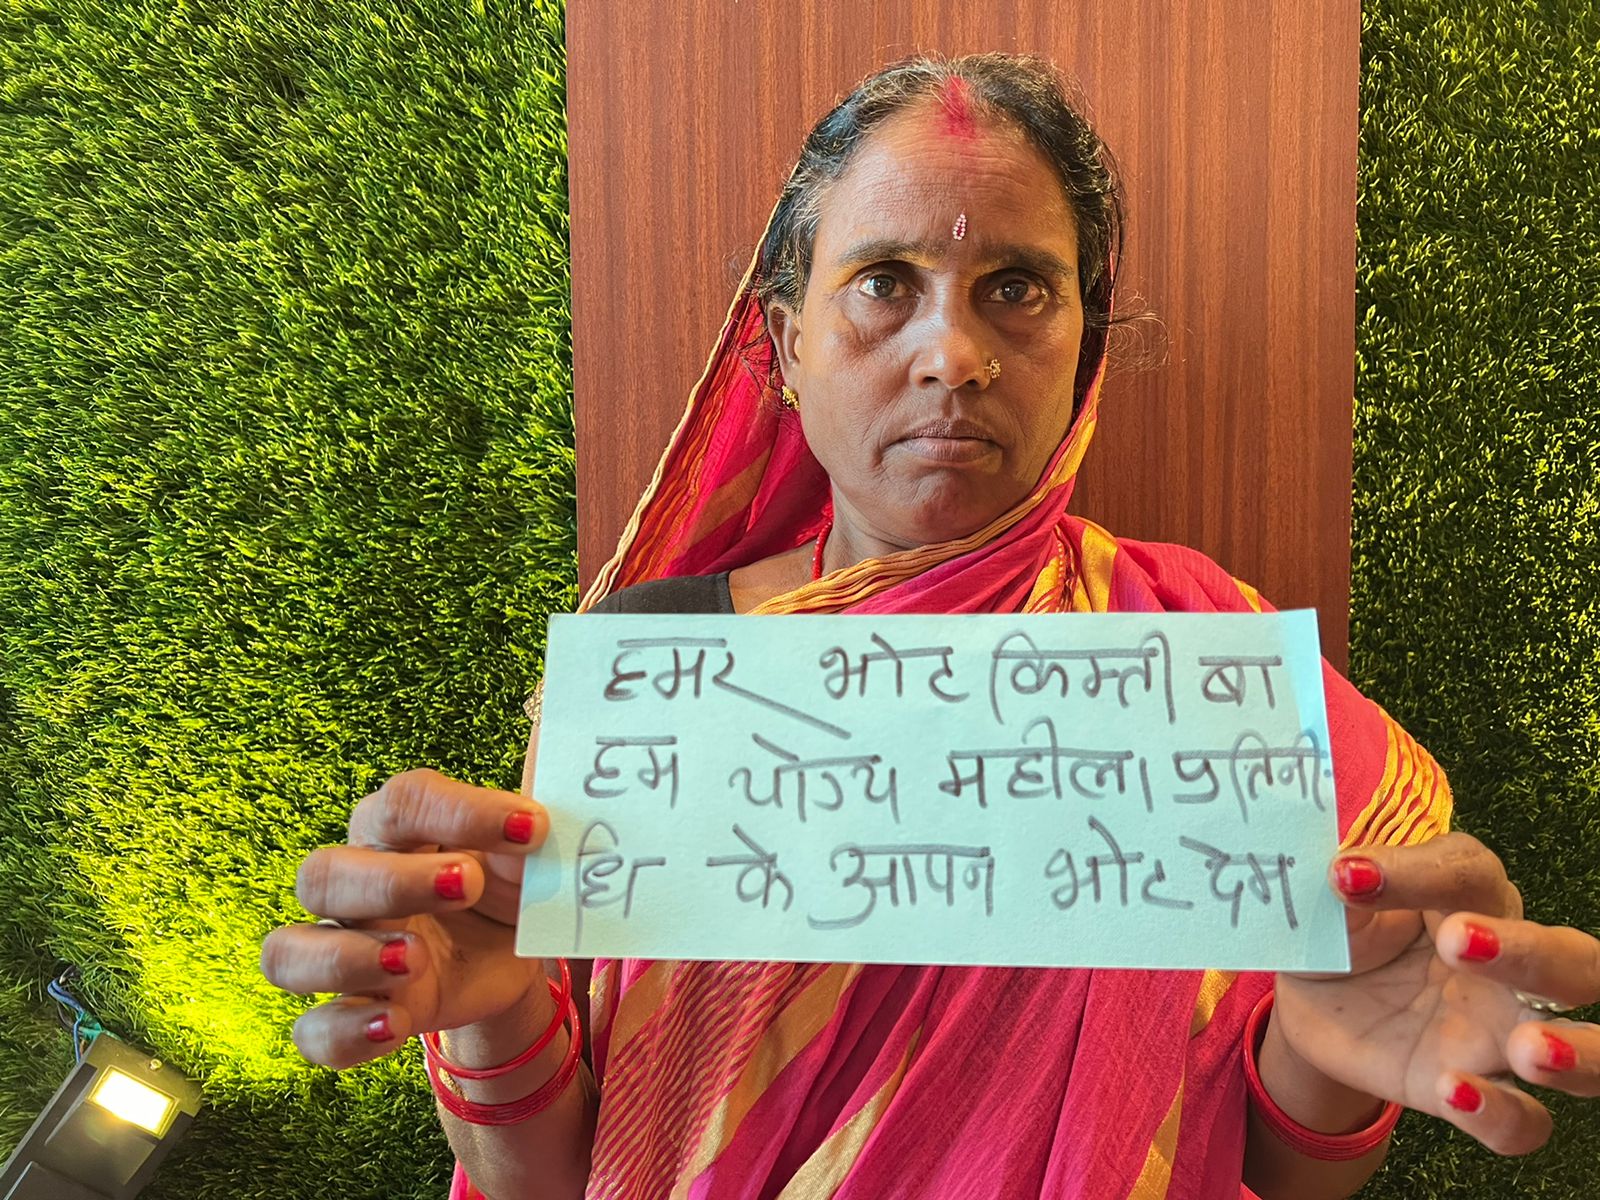 हमर भोट किम्ती बा
हम योग्य महीला प्रतिनी-
धि के आपन भोट देम